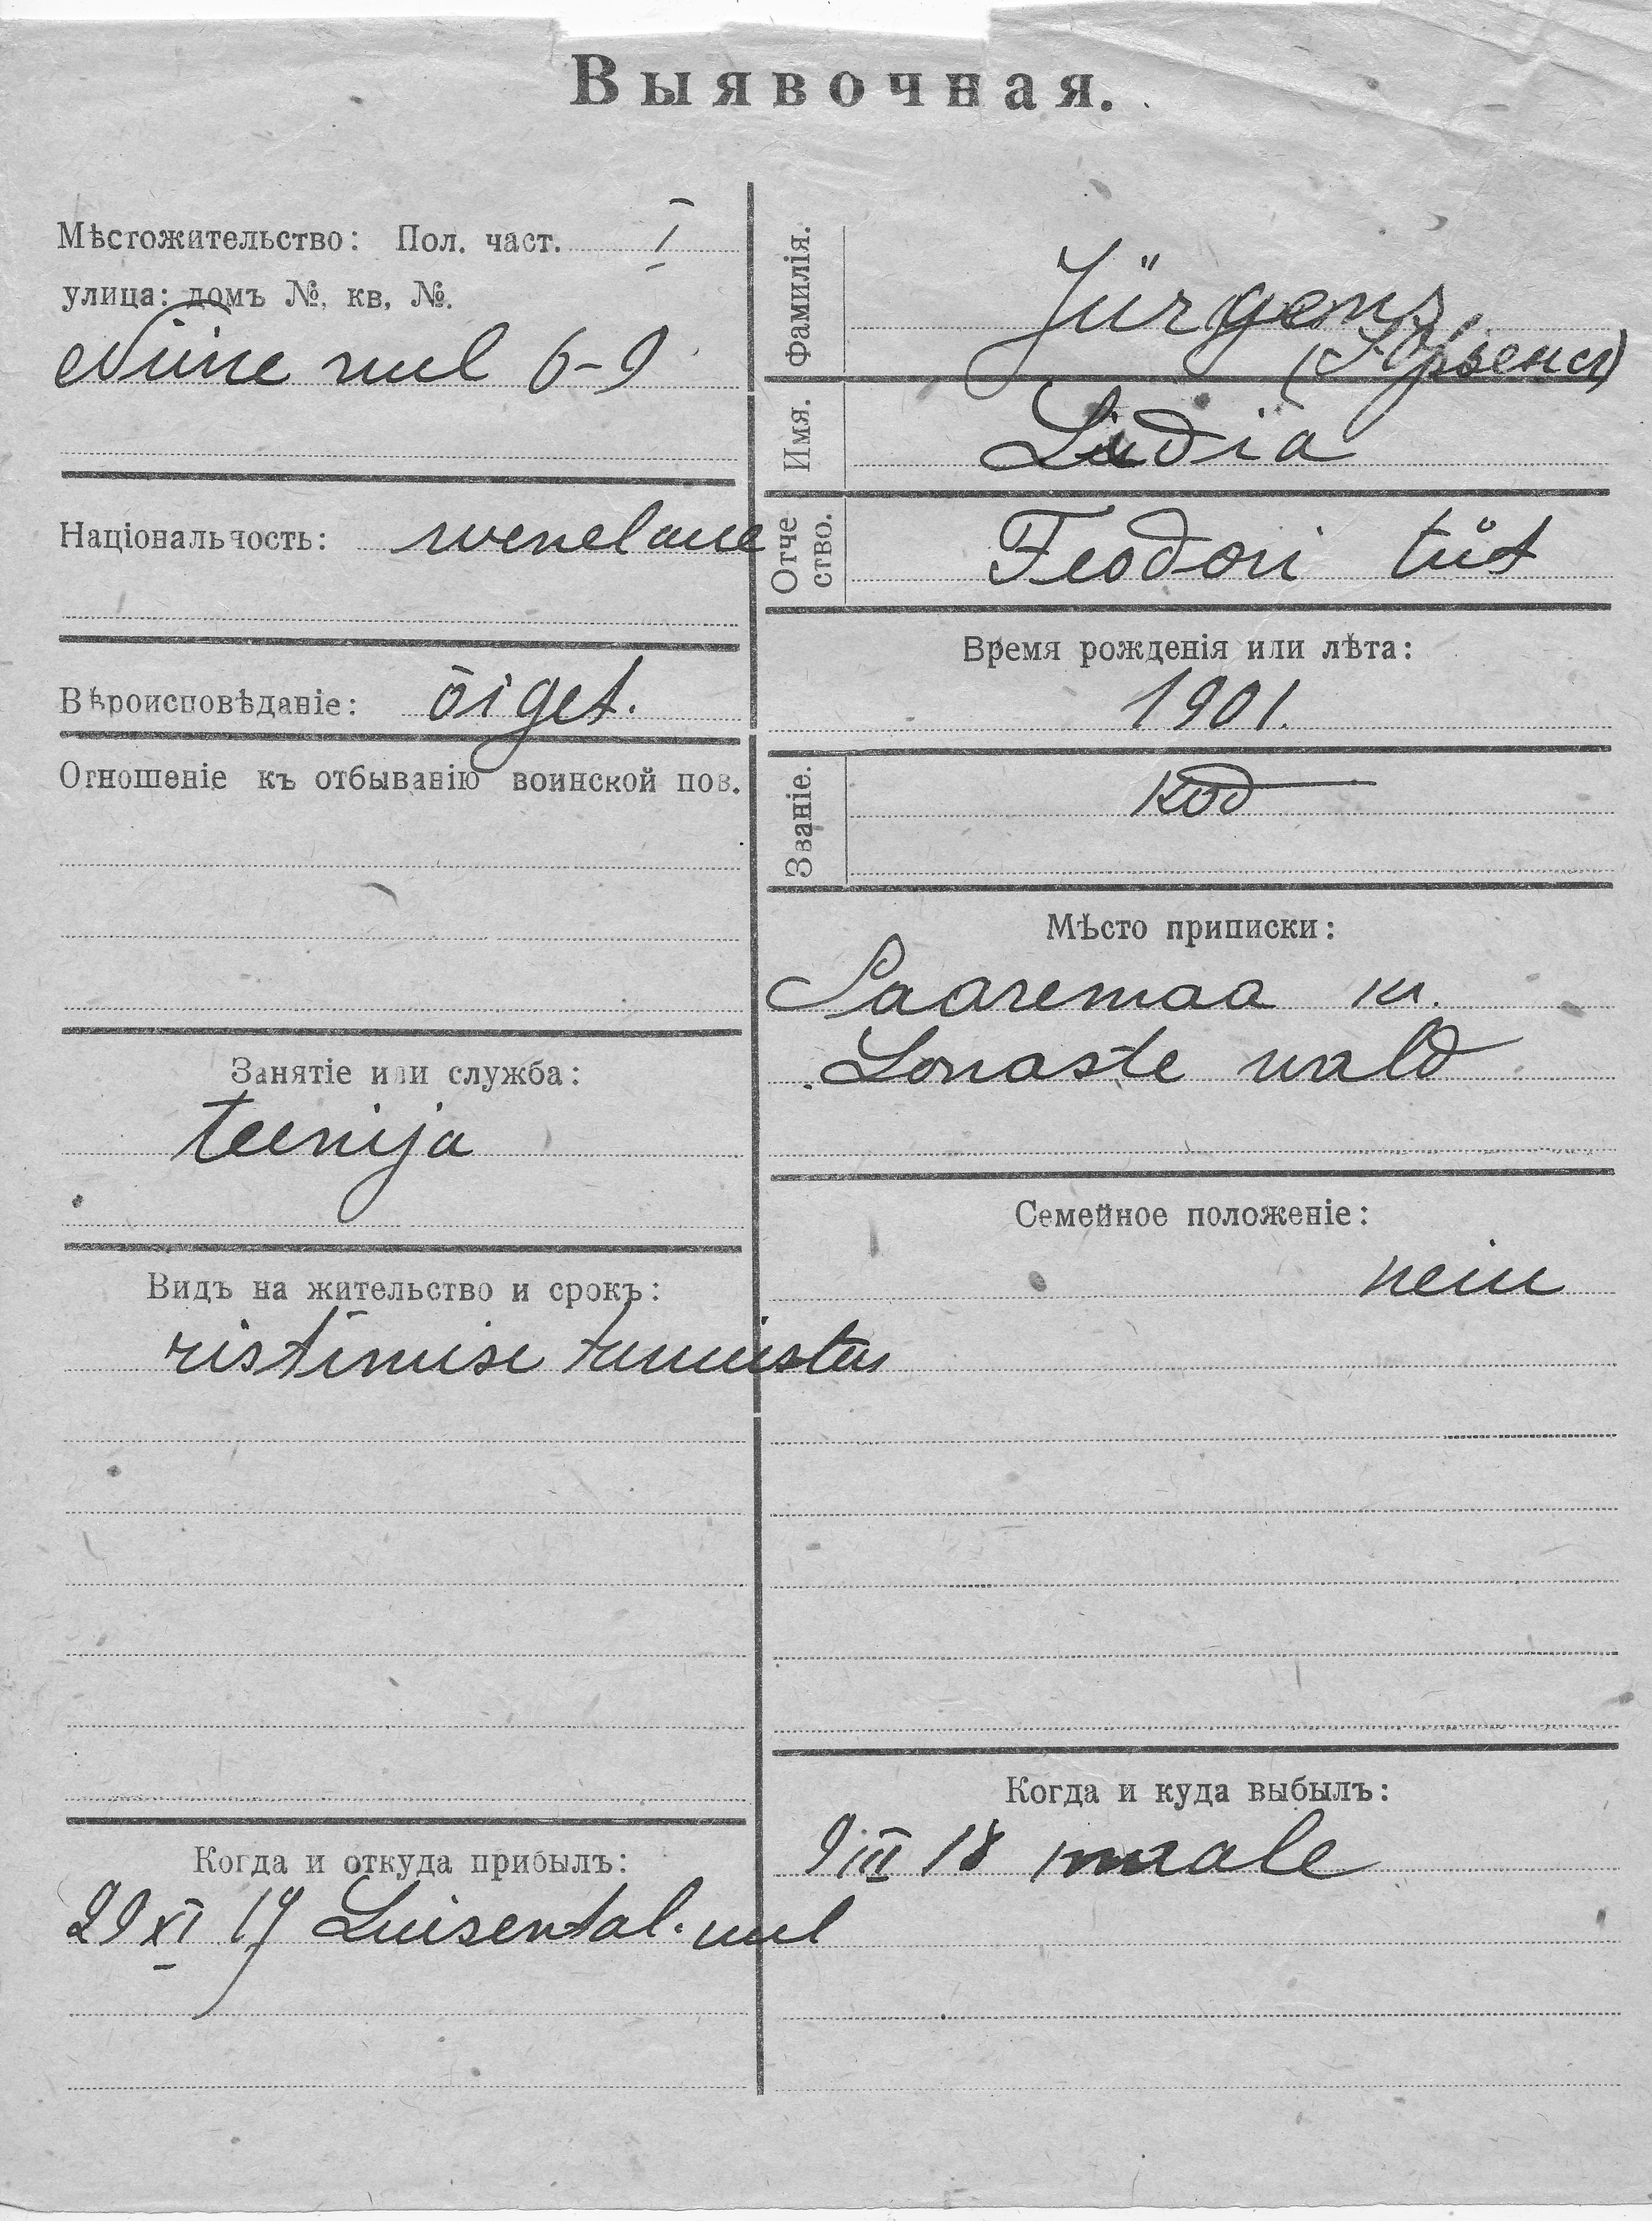 Выявочная.
Мѣстожительство: Пол. част. I
улица: домъ №, кв, №.
Niine uul 6-9
Національность: wenelane
Вѣроисповѣданіе: õiget.
Отношеніе къ отбыванію воинской пов.
Занятіе или служба:
teenija
Видъ на жительство и срокъ:
ristimise tunnistus
Когда и откуда прибылъ:
29 XI 17 Luisental. uul
Фамилія.
Jürgens
Имя.
Lidia
Отче
ство.
Feodori tüt
Время рожденія или лѣта:
1901.
Званіе.
kod
Мѣсто приписки:
Saaremaa kr.
Lonaste wald
Семейное положеніе:
neiu
Когда и куда выбылъ:
9 III 18 maale